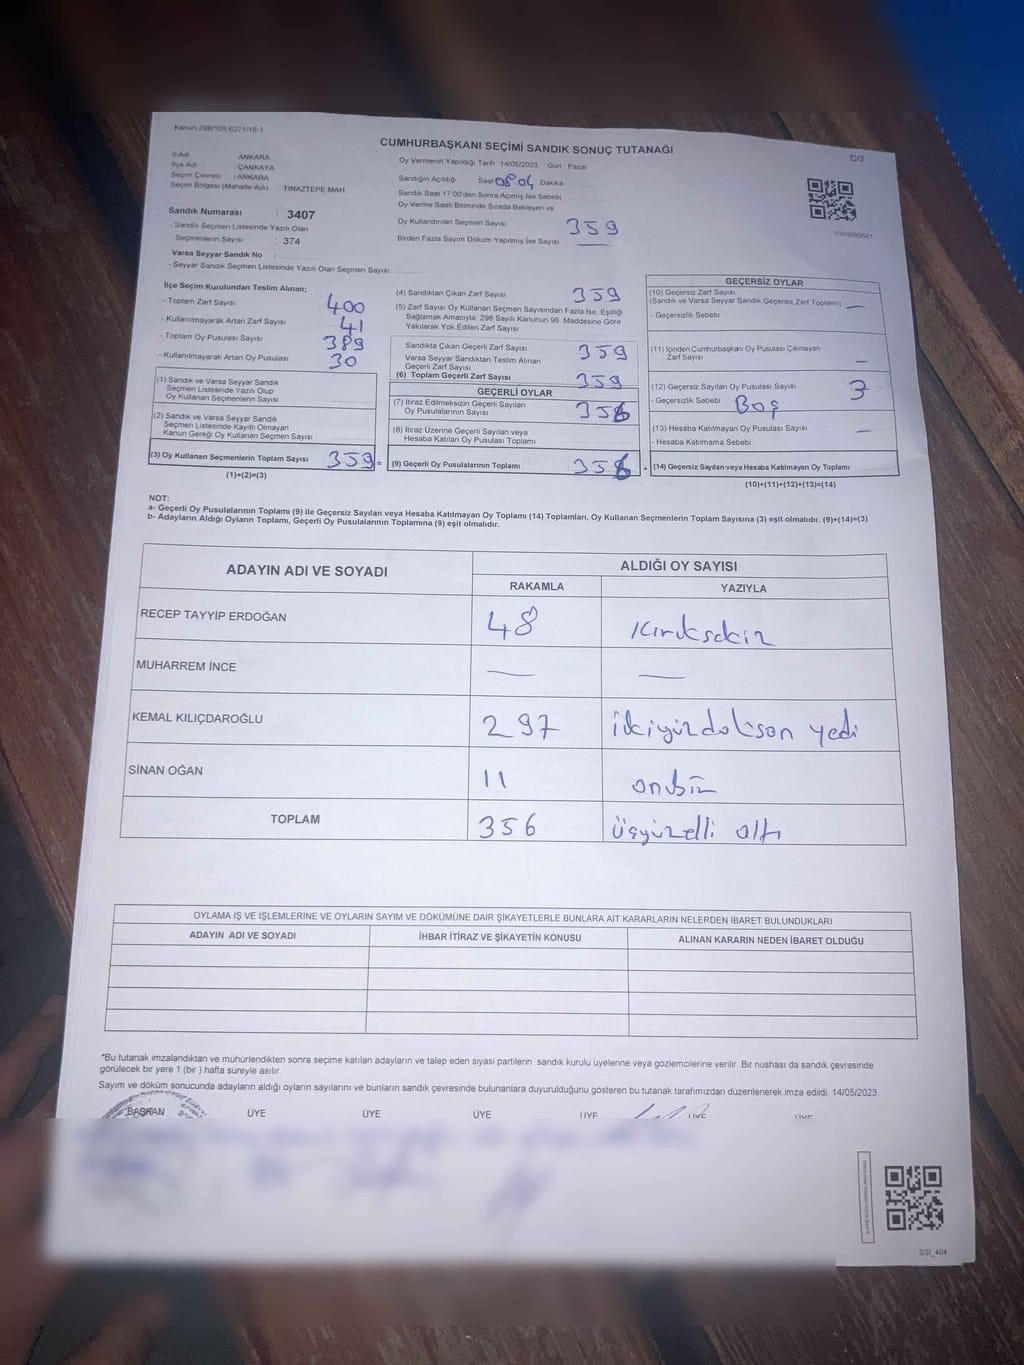 Kanun:298/105,6271/18-1
CUMHURBAŞKANI SEÇİMİ SANDIK SONUÇ TUTANAĞI
C/2
İl Adı : ANKARA
İlçe Adı : ÇANKAYA
Seçim Çevresi : ANKARA
Seçim Bölgesi (Mahalle Adı) TINAZTEPE MAH
Sandık Numarası : 3407
- Sandık Seçmen Listesinde Yazılı Olan
Seçmenlerin Sayısı : 374
Varsa Seyyar Sandık No :
- Seyyar Sandık Seçmen Listesinde Yazılı Olan Seçmen Sayısı
Oy Vermenin Yapıldığı Tarih 14/05/2023 Gün : Pazar
Sandığın Açıldığı Saat 08 04 Dakika
Sandık Saat 17:00'den Sonra Açılmış İse Sebebi
Oy Verme Saati Bitiminde Sırada Bekleyen ve
Oy Kullandırılan Seçmen Sayısı 359
Birden Fazla Sayım Döküm Yapılmış İse Sayısı —
1093690661
İlçe Seçim Kurulundan Teslim Alınan;
- Toplam Zarf Sayısı 400
- Kullanılmayarak Artan Zarf Sayısı 41
- Toplam Oy Pusulası Sayısı 389
- Kullanılmayarak Artan Oy Pusulası 30
(1) Sandık ve Varsa Seyyar Sandık
Seçmen Listesinde Yazılı Olup
Oy Kullanan Seçmenlerin Sayısı
(2) Sandık ve Varsa Seyyar Sandık
Seçmen Listesinde Kayıtlı Olmayan
Kanun Gereği Oy Kullanan Seçmen Sayısı
(3) Oy Kullanan Seçmenlerin Toplam Sayısı : 359 =
(1)+(2)=(3)
(4) Sandıktan Çıkan Zarf Sayısı 359
(5) Zarf Sayısı Oy Kullanan Seçmen Sayısından Fazla İse, Eşitliği
Sağlamak Amacıyla, 298 Sayılı Kanunun 98. Maddesine Göre
Yakılarak Yok Edilen Zarf Sayısı
Sandıkta Çıkan Geçerli Zarf Sayısı 359
Varsa Seyyar Sandıktan Teslim Alınan
Geçerli Zarf Sayısı
(6) Toplam Geçerli Zarf Sayısı 359
GEÇERLİ OYLAR
(7) İtiraz Edilmeksizin Geçerli Sayılan
Oy Pusulalarının Sayısı 356
(8) İtiraz Üzerine Geçerli Sayılan veya
Hesaba Katılan Oy Pusulası Toplamı
(9) Geçerli Oy Pusulalarının Toplamı : 356 +
GEÇERSİZ OYLAR
(10) Geçersiz Zarf Sayısı
(Sandık ve Varsa Seyyar Sandık Geçersiz Zarf Toplamı) —
- Geçersizlik Sebebi :
(11) İçinden Cumhurbaşkanı Oy Pusulası Çıkmayan
Zarf Sayısı —
(12) Geçersiz Sayılan Oy Pusulası Sayısı 3
- Geçersizlik Sebebi : Boş
(13) Hesaba Katılmayan Oy Pusulası Sayısı —
- Hesaba Katılmama Sebebi :
(14) Geçersiz Sayılan veya Hesaba Katılmayan Oy Toplamı
(10)+(11)+(12)+(13)=(14)
NOT:
a- Geçerli Oy Pusulalarının Toplamı (9) ile Geçersiz Sayılan veya Hesaba Katılmayan Oy Toplamı (14) Toplamları, Oy Kullanan Seçmenlerin Toplam Sayısına (3) eşit olmalıdır. (9)+(14)=(3)
b- Adayların Aldığı Oyların Toplamı, Geçerli Oy Pusulalarının Toplamına (9) eşit olmalıdır.
ADAYIN ADI VE SOYADI ALDIĞI OY SAYISI
RAKAMLA YAZIYLA
RECEP TAYYİP ERDOĞAN 48 Kırksekiz
MUHARREM İNCE — —
KEMAL KILIÇDAROĞLU 297 ikiyüzdokson yedi
SİNAN OĞAN 11 onbir
TOPLAM 356 üçyüzelli altı
OYLAMA İŞ VE İŞLEMLERİNE VE OYLARIN SAYIM VE DÖKÜMÜNE DAİR ŞİKAYETLERLE BUNLARA AİT KARARLARIN NELERDEN İBARET BULUNDUKLARI
ADAYIN ADI VE SOYADI İHBAR İTİRAZ VE ŞİKAYETİN KONUSU ALINAN KARARIN NEDEN İBARET OLDUĞU
*Bu tutanak imzalandıktan ve mühürlendikten sonra seçime katılan adayların ve talep eden siyasi partilerin sandık kurulu üyelerine veya gözlemcilerine verilir. Bir nüshası da sandık çevresinde
görülecek bir yere 1 (bir ) hafta süreyle asılır.
Sayım ve döküm sonucunda adayların aldığı oyların sayılarını ve bunların sandık çevresinde bulunanlara duyurulduğunu gösteren bu tutanak tarafımızdan düzenlenerek imza edildi. 14/05/2023
BAŞKAN ÜYE ÜYE ÜYE ÜYE ÜYE ÜYE
SSI_404